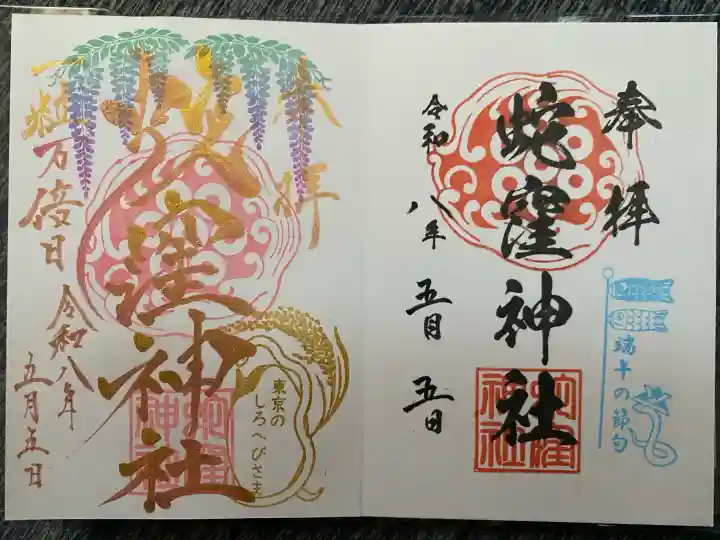 奉拝
蛇窪神社
令和八年 五月 五日
端午の節句
蛇窪神社
奉拝
蛇窪神社
一粒万倍日 令和八年
五月五日
東京の
しろへびさま
蛇窪神社